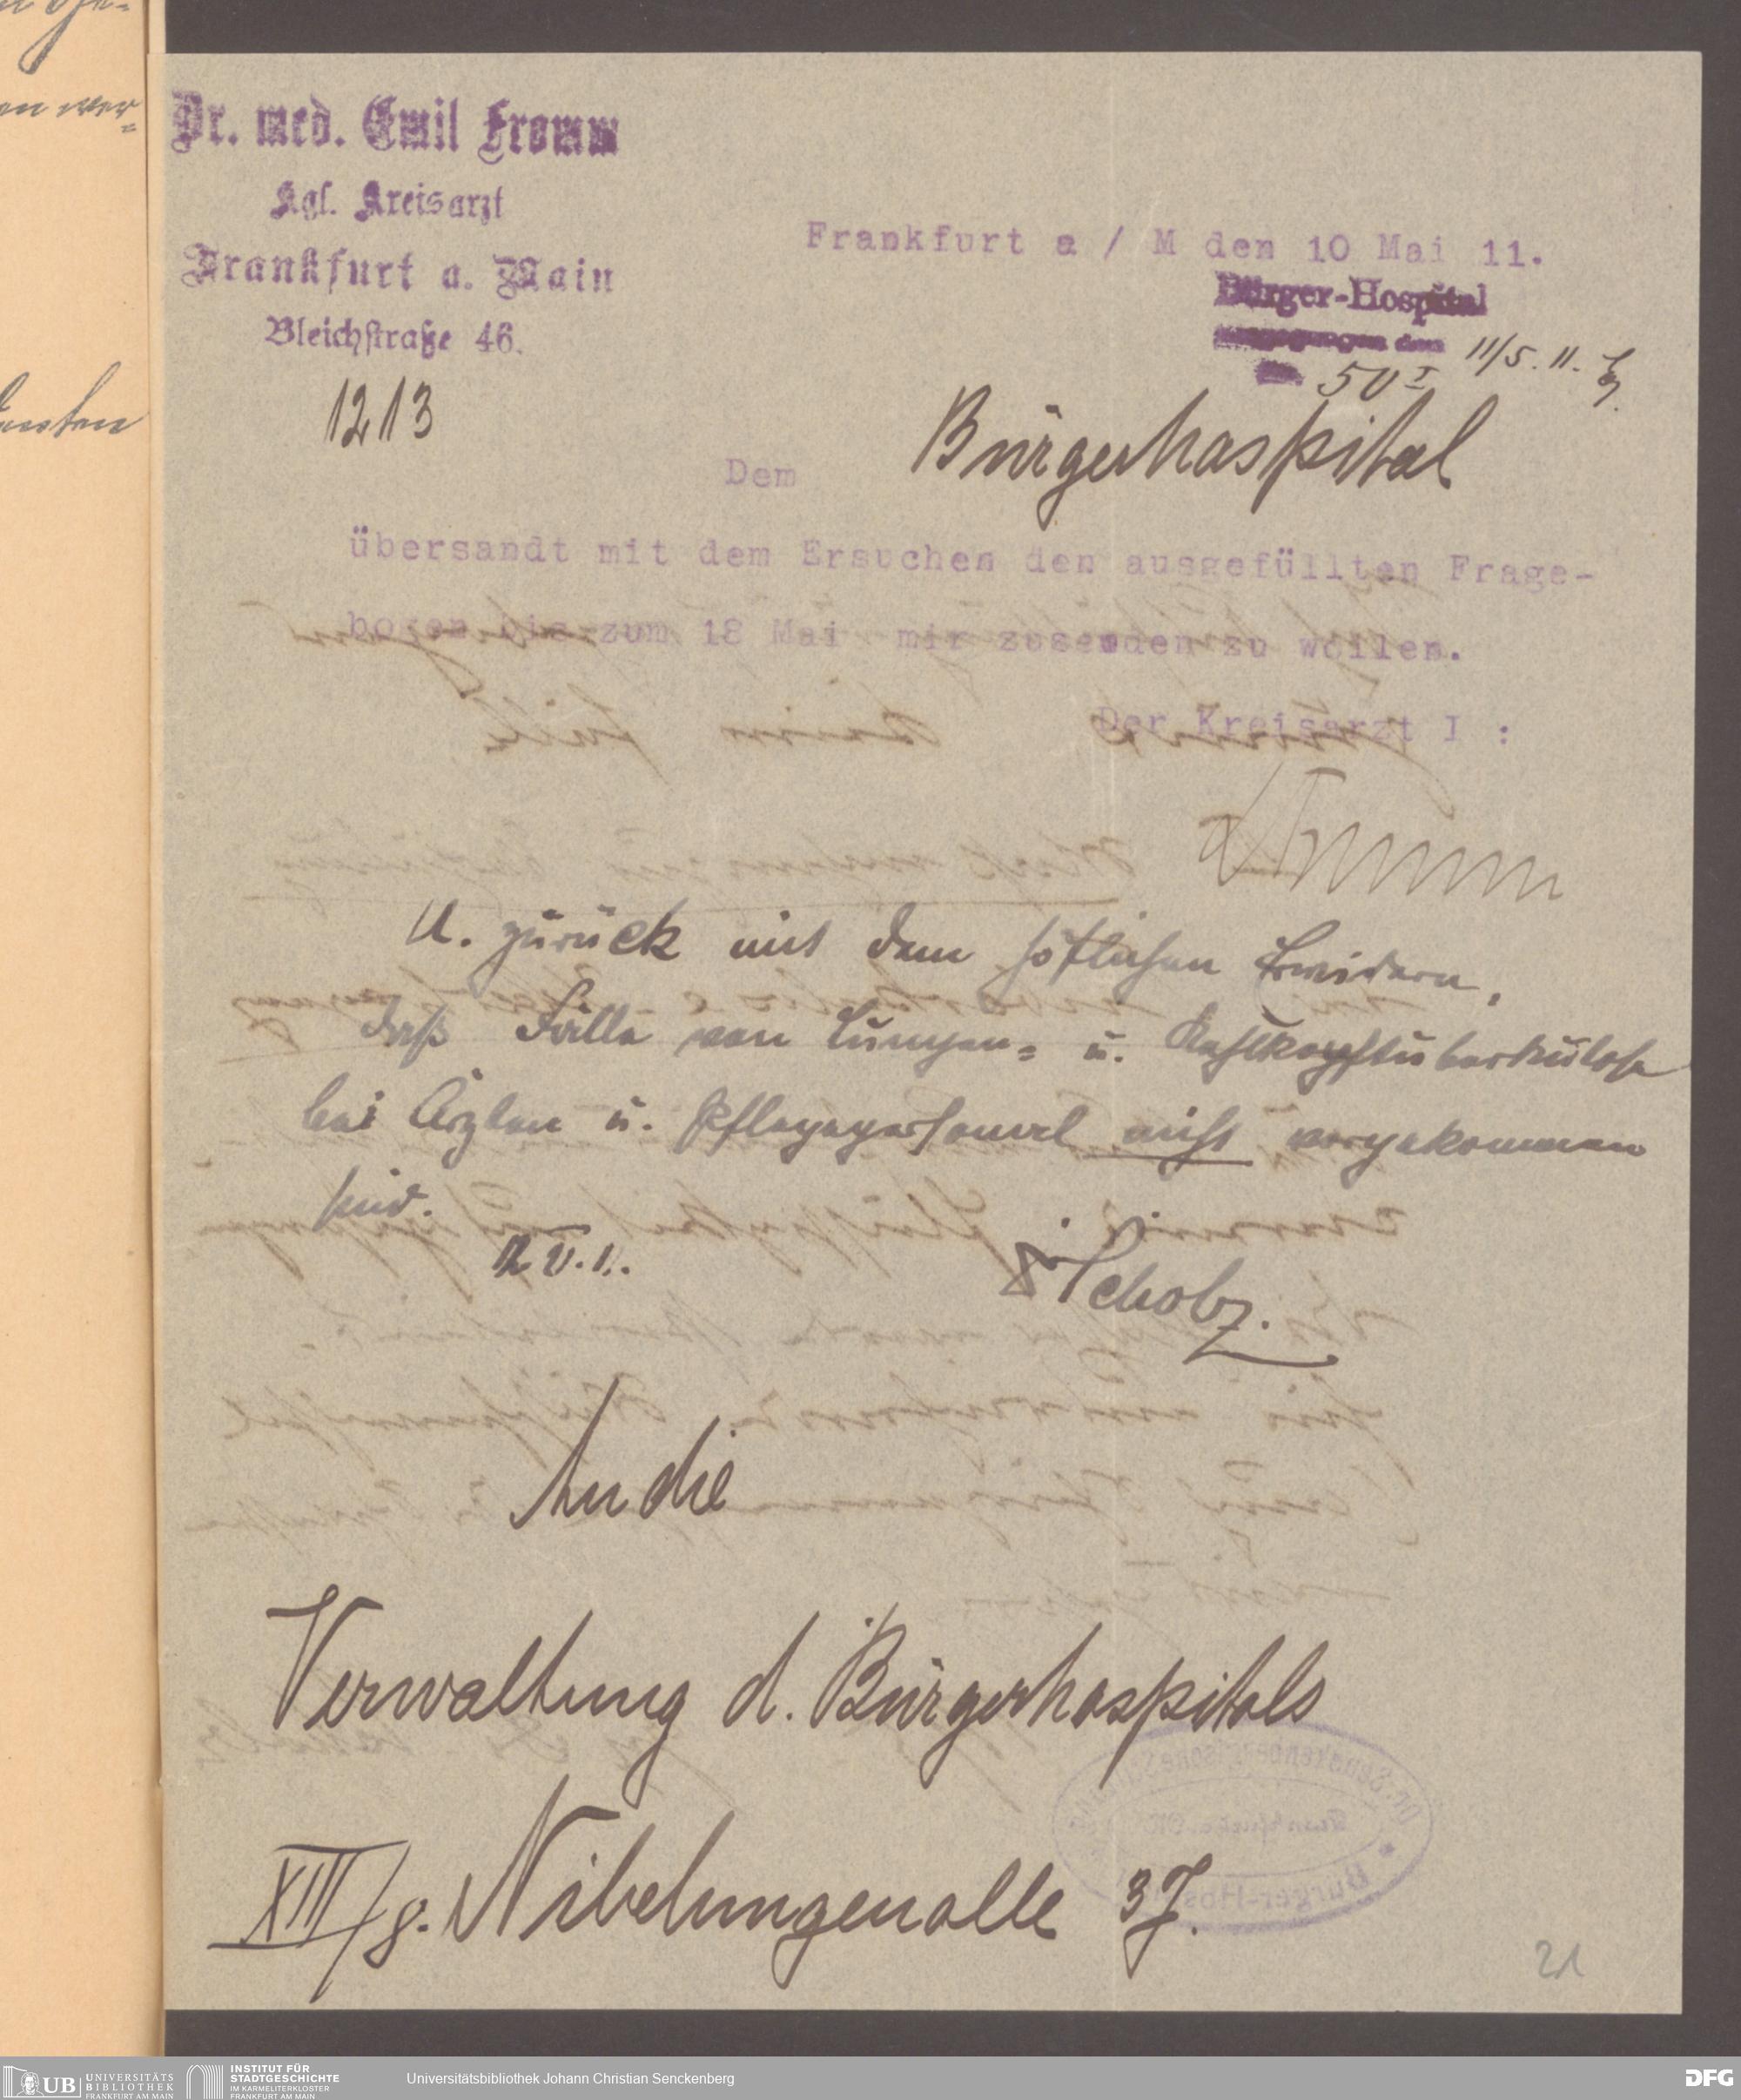 Dr. med. Emil Fromm
Kgl. Kreisarzt
Frankfurt a. Main
Bleichstraße 46.
1213
Frankfurt a / M den 10 Mai 11.
Bürger-Hospital
den 11/5. 11.
50 I
Dem Bürgerhospital
übersandt mit dem Ersuchen den ausgefüllten Frage-
bogen bis zum 18 Mai mir zusenden zu wollen.
Der Kreisarzt I :
Fromm
U. zurück mit dem höflichen Erwidern,
daß Fälle von Lungen- u. Kehlkopftuberkulose
bei Ärzten u. Pflegepersonal nicht vorgekommen
sind.
12 V. 11.
Scholz.
An die
Verwaltung d. Bürgerhospitals
XIII/8. Nibelungenalle 37.
21
UB UNIVERSITÄTS
BIBLIOTHEK
FRANKFURT AM MAIN
INSTITUT FÜR
STADTGESCHICHTE
IM KARMELITERKLOSTER
FRANKFURT AM MAIN
Universitätsbibliothek Johann Christian Senckenberg
DFG